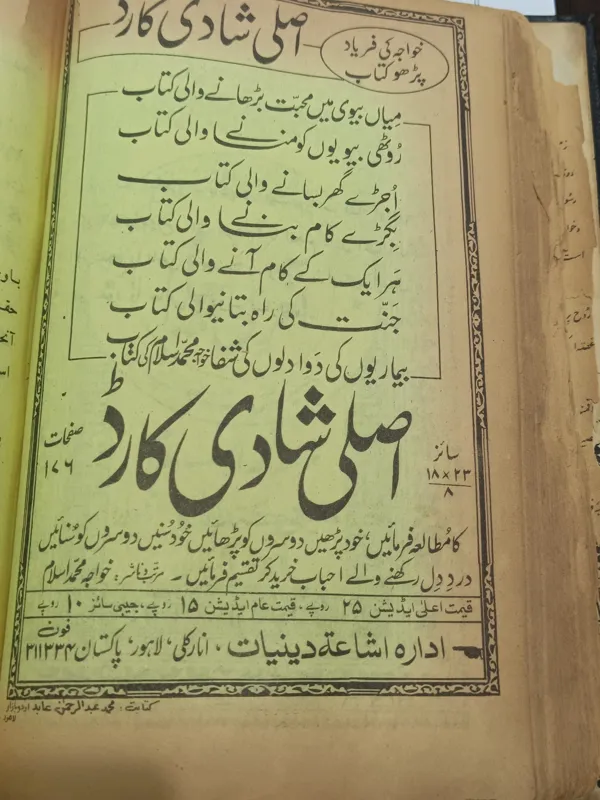 اصلی شادی کارڈ
خواجہ کی فریاد
پڑھو کتاب
میاں بیوی میں محبت بڑھانے والی کتاب
رُوٹھی بیویوں کو منانے والی کتاب
اُجڑے گھر بسانے والی کتاب
بگڑے کام بنانے والی کتاب
ہر ایک کے کام آنے والی کتاب
جنّت کی راہ بتانیوالی کتاب
بیماریوں کی دَوا دلوں کی شفا خواجہ محمد اسلام کی کتاب
اصلی شادی کارڈ
سائز
۲۳×۱۸
۸
صفحات
۱۷۶
کا مُطالعہ فرمائیں، خود پڑھیں دوسروں کو پڑھائیں خود سُنیں دوسروں کو سُنائیں
دردِ دل رکھنے والے احباب خرید کر تقسیم فرمائیں ۔ مرتب و ناشر: خواجہ محمد اسلام
قیمت اعلیٰ ایڈیشن ۲۵ روپے، قیمت عام ایڈیشن ۱۵ روپے، جیبی سائز ۱۰ روپے
ادارہ اشاعة دینیات ، انارکلی، لاہور، پاکستان فون ۲۱۱۳۳۴
کتابت: محمد عبدالرحمٰن عابد اردو بازار لاہور